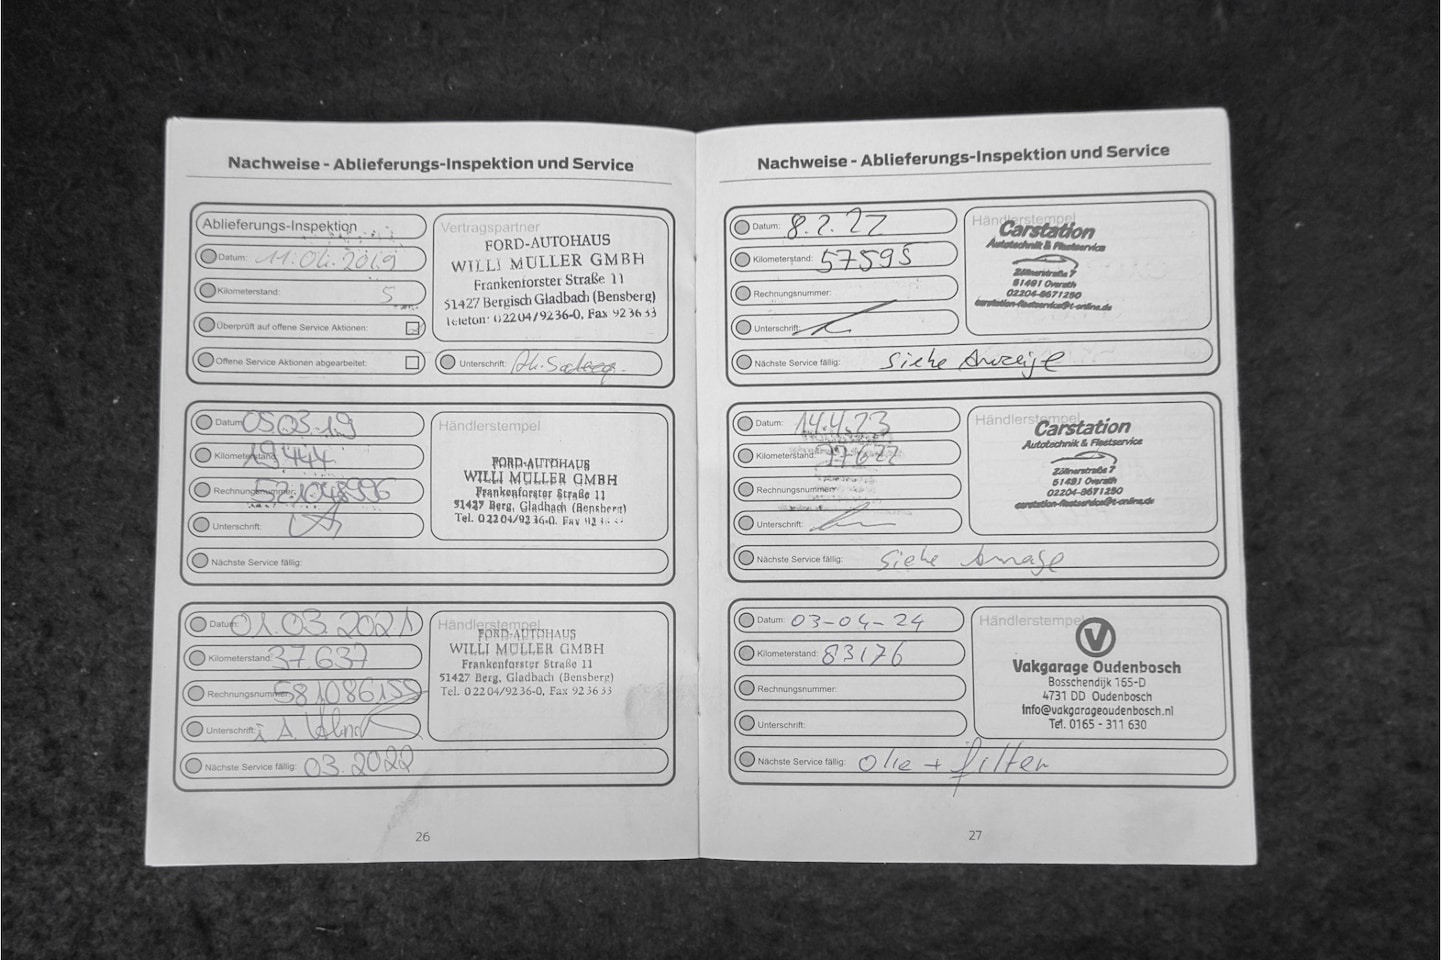 Nachweise - Ablieferungs-Inspektion und Service
Ablieferungs-Inspektion
Datum: 11.04.2019
Kilometerstand: 5
Überprüft auf offene Service Aktionen:
Offene Service Aktionen abgearbeitet:
Vertragspartner
FORD-AUTOHAUS
WILLI MÜLLER GMBH
Frankenforster Straße 11
51427 Bergisch Gladbach (Bensberg)
Telefon: 02204/9236-0, Fax 923633
Unterschrift:
Datum: 05.03.19
Kilometerstand: 19444
Rechnungsnummer:
Unterschrift:
Nächste Service fällig:
Händlerstempel
FORD-AUTOHAUS
WILLI MÜLLER GMBH
Frankenforster Straße 11
51427 Berg. Gladbach (Bensberg)
Tel. 02204/9236-0, Fax 92
Datum: 01.03.2021
Kilometerstand: 37.637
Rechnungsnummer: 581086155
Unterschrift: i A.
Nächste Service fällig: 03.2022
Händlerstempel
FORD-AUTOHAUS
WILLI MÜLLER GMBH
Frankenforster Straße 11
51427 Berg. Gladbach (Bensberg)
Tel. 02204/9236-0, Fax 923633
26
Nachweise - Ablieferungs-Inspektion und Service
Datum: 8.2.22
Kilometerstand: 57595
Rechnungsnummer:
Unterschrift:
Nächste Service fällig: Siehe Anzeige
Händlerstempel
Carstation
Autotechnik & Fleetservice
Zöllnerstraße 7
51491 Overath
02204-8671280
carstation-fleetservice@t-online.de
Datum: 14.4.23
Kilometerstand: 77622
Rechnungsnummer:
Unterschrift:
Nächste Service fällig: Siehe
Händlerstempel
Carstation
Autotechnik & Fleetservice
Zöllnerstraße 7
51491 Overath
02204-8671280
carstation-fleetservice@t-online.de
Datum: 03-04-24
Kilometerstand: 83176
Rechnungsnummer:
Unterschrift:
Nächste Service fällig: Olie + filter
Händlerstempel
V
Vakgarage Oudenbosch
Bosschendijk 165-D
4731 DD Oudenbosch
Info@vakgarageoudenbosch.nl
Tel. 0165 - 311 630
27